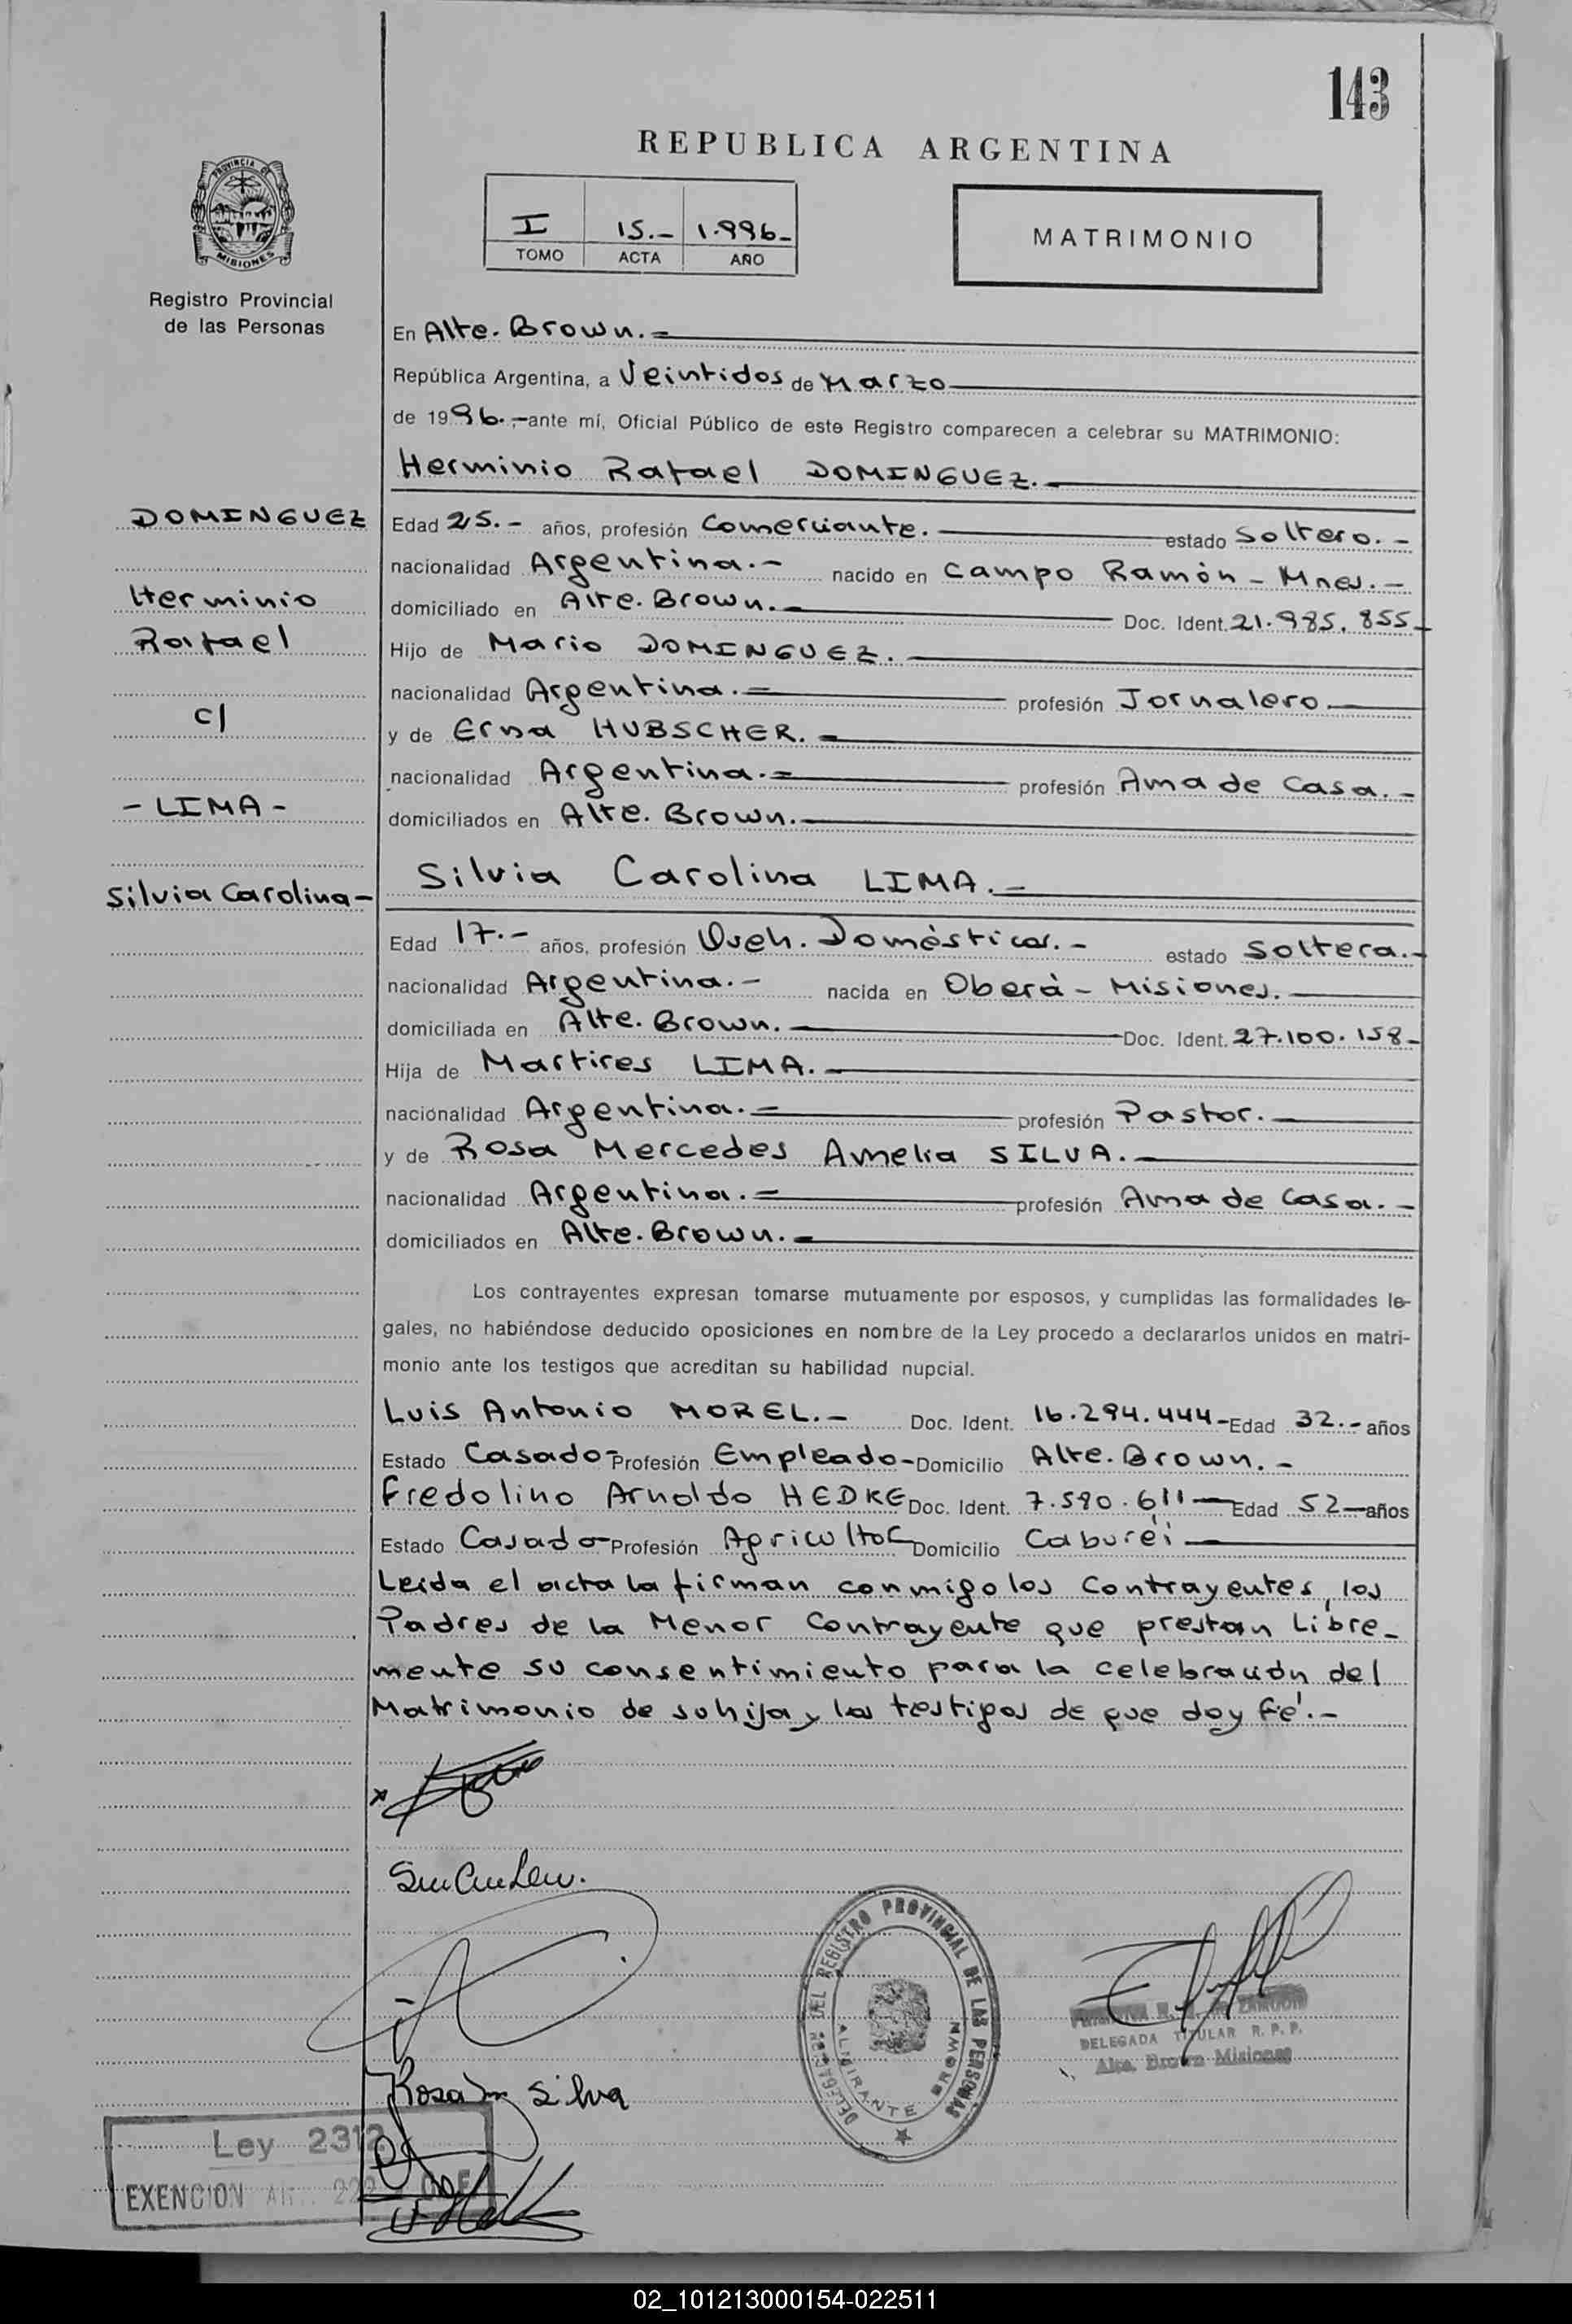 143
REPUBLICA ARGENTINA
PROVINCIA DE
MISIONES
Registro Provincial
de las Personas
I 15.- 1.996-
TOMO ACTA AÑO
MATRIMONIO
En Alte. Brown.=
República Argentina, a Veintidos de Marzo
de 1996.- ante mí, Oficial Público de este Registro comparecen a celebrar su MATRIMONIO:
Herminio Rafael DOMINGUEZ.-
DOMINGUEZ
Edad 25.- años, profesión Comerciante. estado Soltero.-
nacionalidad Argentina.- nacido en Campo Ramón - Mnes.-
Herminio
domiciliado en Alte. Brown.- Doc. Ident. 21.985.855-
Rafael
Hijo de Mario DOMINGUEZ.
nacionalidad Argentina.= profesión Jornalero.
c/
y de Erna HUBSCHER.-
nacionalidad Argentina.= profesión Ama de Casa.-
- LIMA -
domiciliados en Alte. Brown.
Silvia Carolina LIMA.-
Silvia Carolina-
Edad 17.- años, profesión Queh. Domésticos.- estado Soltera.-
nacionalidad Argentina.- nacida en Oberá - Misiones.
domiciliada en Alte. Brown. Doc. Ident. 27.100.158-
Hija de Martires LIMA.-
nacionalidad Argentina.= profesión Pastor.
y de Rosa Mercedes Amelia SILVA.-
nacionalidad Argentina.= profesión Ama de Casa.-
domiciliados en Alte. Brown.-
Los contrayentes expresan tomarse mutuamente por esposos, y cumplidas las formalidades le-
gales, no habiéndose deducido oposiciones en nombre de la Ley procedo a declararlos unidos en matri-
monio ante los testigos que acreditan su habilidad nupcial.
Luis Antonio MOREL.- Doc. Ident. 16.294.444- Edad 32.- años
Estado Casado- Profesión Empleado- Domicilio Alte. Brown.-
Fredolino Arnoldo HEDKE Doc. Ident. 7.590.611- Edad 52- años
Estado Casado- Profesión Agricultor Domicilio Caburéi
Leida el acta la firman conmigo los Contrayentes, los
Padres de la Menor Contrayente que prestan Libre-
mente su consentimiento para la celebración del
Matrimonio de su hija y los testigos de que doy Fé.-
DELEGACION DEL REGISTRO PROVINCIAL DE LAS PERSONAS
ALMIRANTE BROWN
DELEGADA TITULAR R. P. P.
Alte. Brown Misiones
Rosa Silva
Ley 2312
EXENCION
02_101213000154-022511